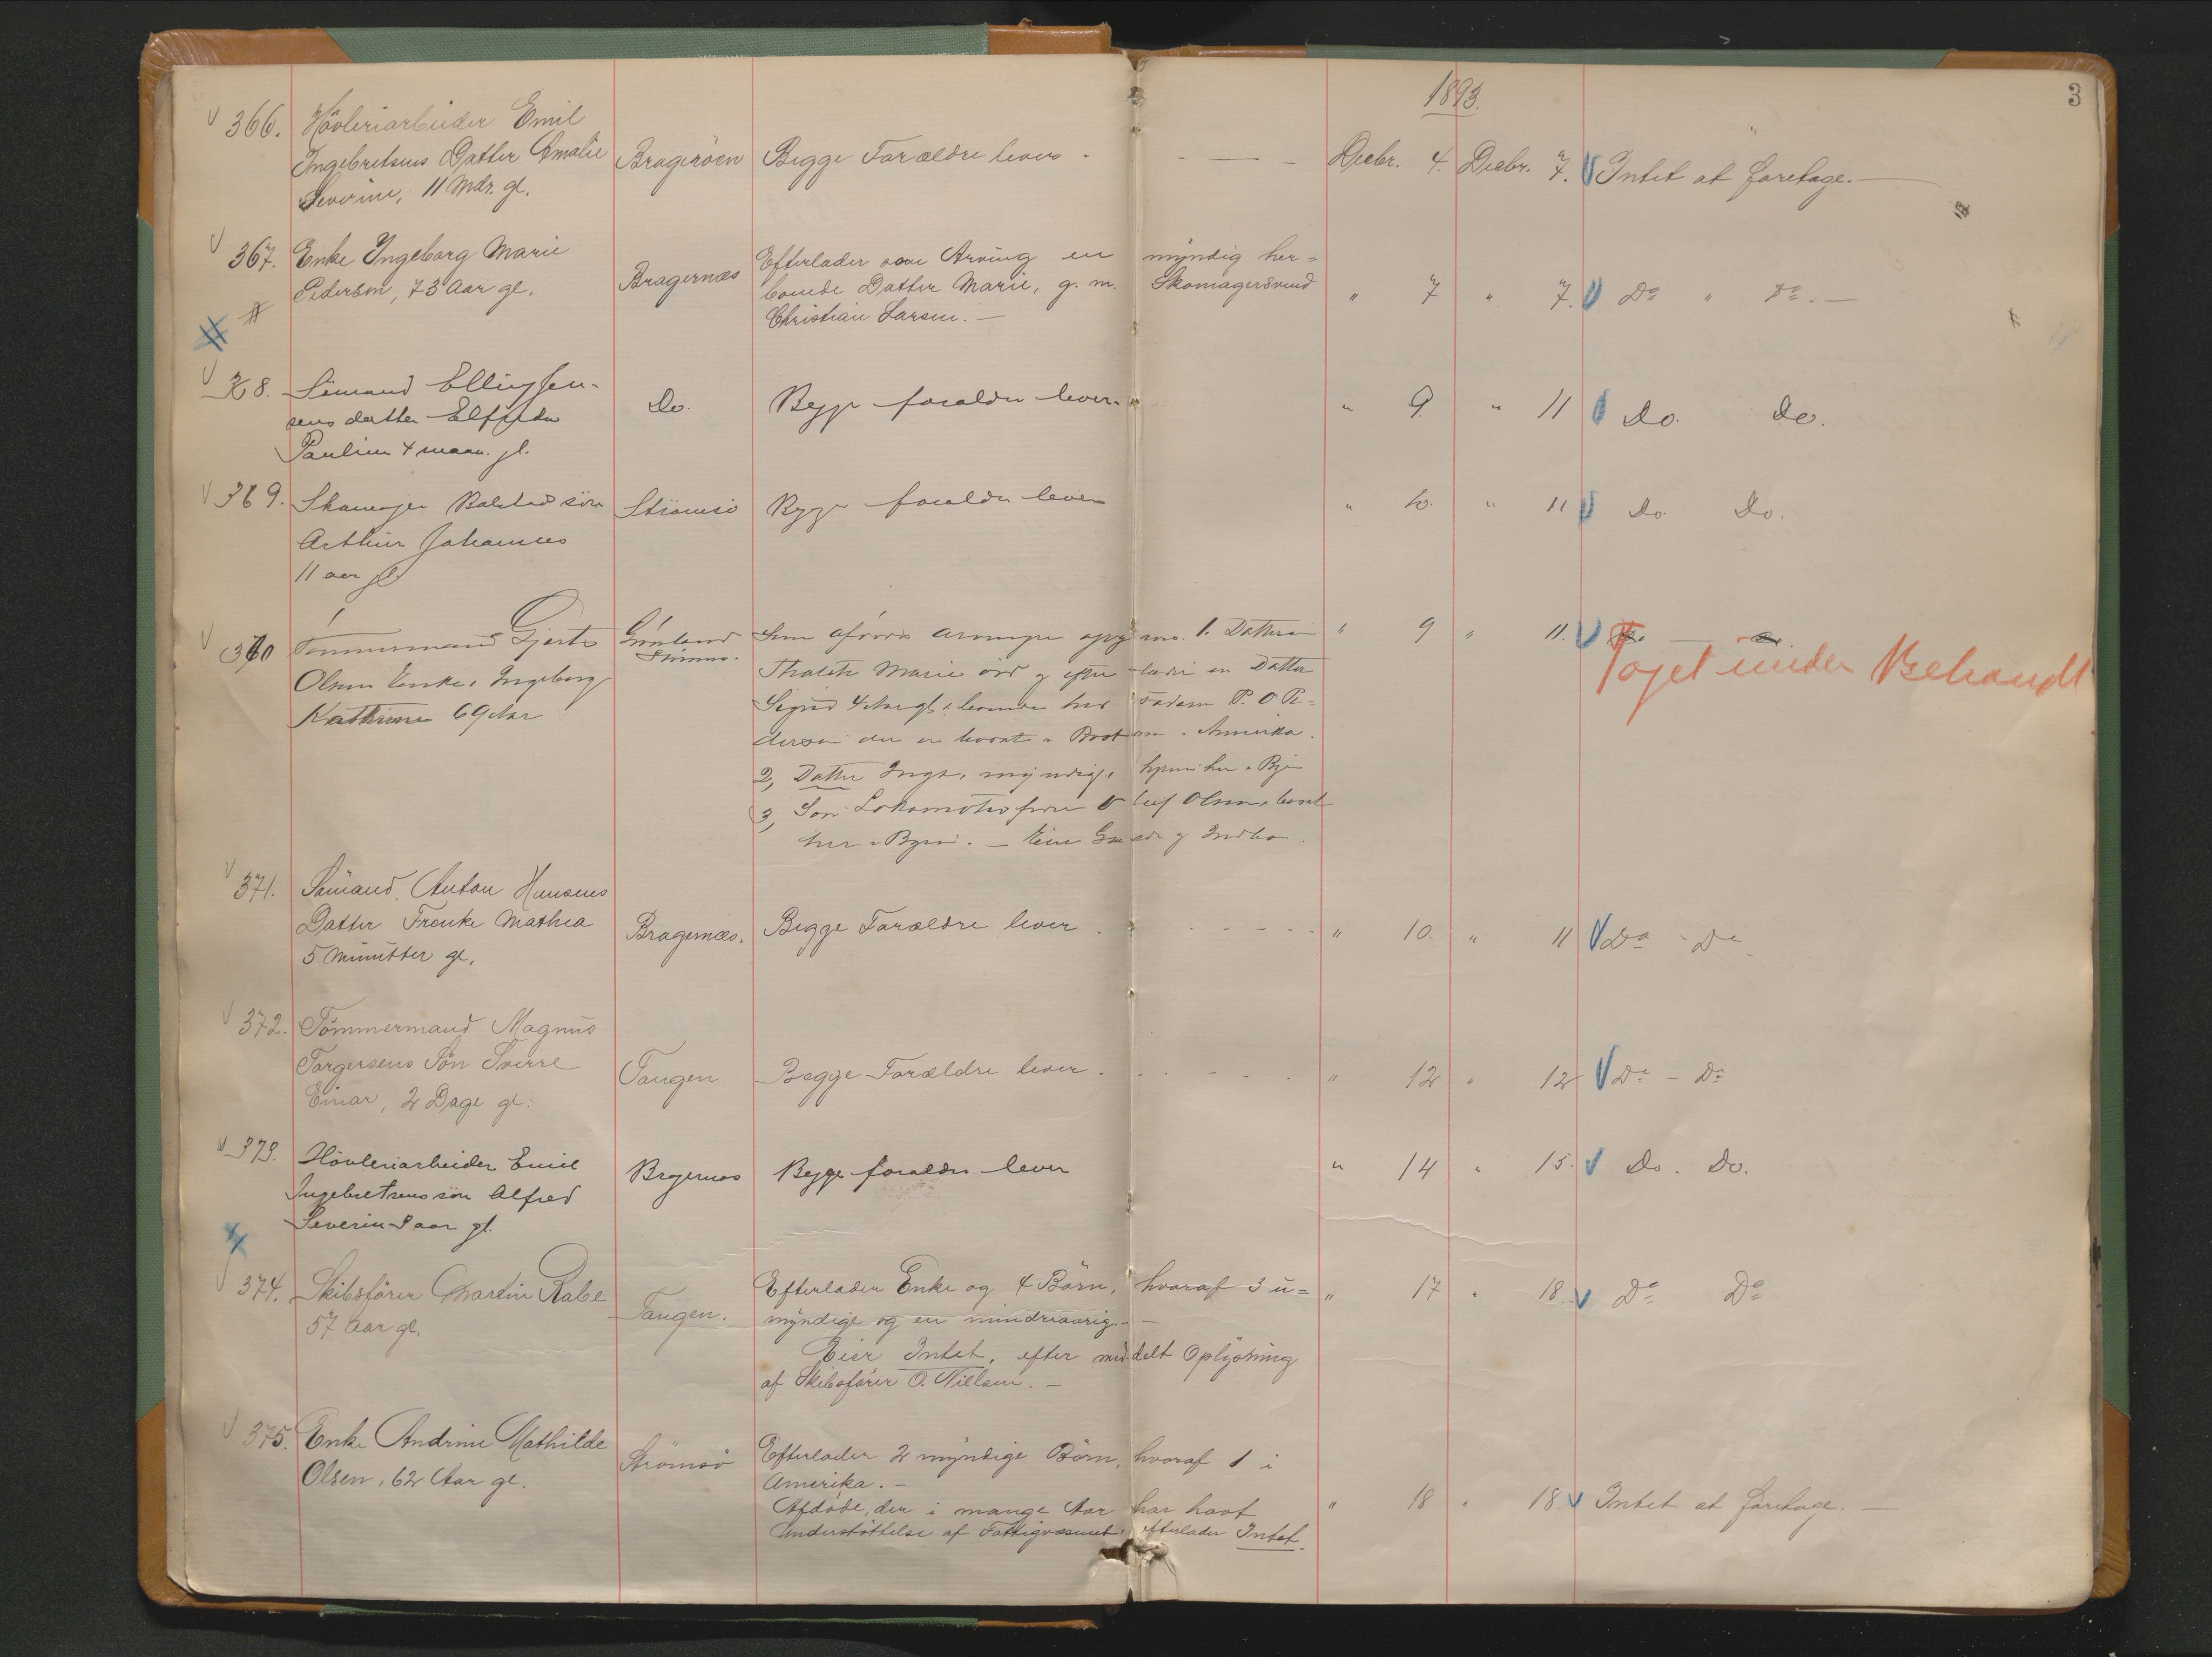 1893.
3
366. Hövleriarbeider Emil
Ingebretsens Datter Amalie Bragerøen Begge Forældre lever. Decbr. 4. Decbr. 7. Intet at foretage.
Severine, 11 Mdr. gl.
367. Enke Ingeborg Marie Efterlader som Arving en myndig her-
Pedersen, 73 Aar gl. Bragernæs boende Datter Marie, g. m. Skomagersvend " 7 " 7. Do " Do.
Christian Larsen.
368. Sömand Ellingsen-
sens datter Elfrida Do. Begge forældre lever. " 9. " 11 Do. Do.
Pauline 4 maan. gl.
369. Skomager sön Strömsö Begge forældre lever " 10. " 11 Do. Do.
Arthur Johannes
11 aar gl.
370 Tømmermand Gjert Grønland Som afdødes Arvinger opg 1. Datteren " 9 " 11.
Strömsö.
Olsens Enke, Ingeborg Marie død og efterlader en Datter Taget under Behandl
Kathrine 69 Aar Sigrid 4 Aar gl. boende hos Faderen P. O Pe-
dersen der er bosat i Boston Amerika.
2, Datter Inga, myndig, hjemme her i Byen
3, Søn Lokomotivfører Oluf Olsen, bosat
her i Byen. og Indbo.
371. Sømand Anton Hansens
Datter Frenke Mathea Bragernæs. Begge Forældre lever. " 10. " 11 Do Do
5 Minutter gl.
372. Tömmermand Magnus
Torgersens Sön Sverre Tangen Begge Forældre lever. " 12 " 12 Do - Do
Einar, 2 Dage gl.
373. Hövleriarbeider Emil Bragernæs Begge forældre lever " 14 " 15. Do. Do.
Ingebretsens sön Alfred
Severin aar gl.
374. Skibsförer Martin Rabe Tangen. Efterlader Enke og 4 Börn, hvoraf 3 u- " 17 " 18. Do Do
57 Aar gl. myndige og en mindreaarig.
Eier Intet, efter meddelt Oplysning
af Skibsförer O. Nielsen.
375. Enke Andrine Mathilde Strömsö Efterlader 2 myndige Börn, hvoraf 1 i
Olsen, 62 Aar gl. Amerika.
Afdöde, der i mange Aar har havt " 18 " 18. Intet at foretage.
Understöttelse af Fattigvæsenet, efterlader Intet.